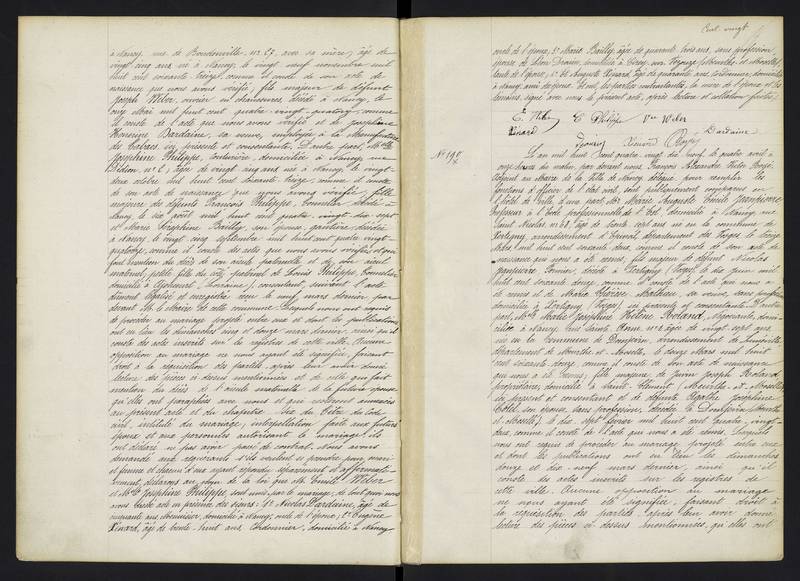 à Nancy, rue de Boudonville, n°. 27, avec sa mère, âgé de
vingt cinq ans né à Nancy, le vingt neuf novembre mil
huit cent soixante treize, comme il conste de son acte de
naissance que nous avons vérifié, fils majeur de défunt
Joseph Weber, ouvrier en chaussures décédé à Nancy, le
onze Mai mil huit cent quatre vingt quatorze, comme
il conste de l'acte que nous avons vérifié et de Joséphine
Honorine Bardaine, sa veuve, employée à la Manufacture
des tabacs ici présente et consentante. D'autre part, Melle
Joséphine Philippe, couturière, domiciliée à Nancy, rue
Didion, n°. 2, âgée de vingt cinq ans née à Nancy, le vingt
deux octobre mil huit cent soixante treize, comme il conste
de son acte de naissance que nous avons vérifié, fille
majeure des défunts François Philippe, tonnelier décédé à
Nancy, le six août mil huit cent quatre-vingt-dix-sept
et Marie Joséphine Bailly, son épouse, gantière, décédée
à Nancy le vingt cinq septembre mil huit cent quatre vingt
quatorze, comme il conste des actes que nous avons vérifiés et qui
font mention du décès de son aïeule paternelle et de son aïeul
maternel, petite fille du côté paternel de Louis Philippe, tonnelier
domicilié à (Lorraine), consentant, suivant l'acte
dûment légalisé et enregistré reçu le neuf mars dernier par
devant Mr le Maire de cette commune. Lesquels nous ont requis
de procéder au mariage projeté entre eux et dont les publications
ont eu lieu les dimanches cinq et douze mars dernier, ainsi qu'il
conste des actes inscrits sur les registres de cette ville. Aucune
opposition au mariage ne nous ayant été signifiée, faisant
droit à la réquisition des parties après leur avoir donné
lecture des pièces ci-dessus mentionnées et de celle qui fait
mention du décès de l'aïeule maternelle de la future épouse
qu'elles ont paraphées avec nous et qui resteront annexées
au présent acte et du chapitre Six du Titre du Code
civil, intitulé du mariage, interpellation faite aux futurs
époux et aux personnes autorisant le mariage ils
ont déclaré n'y pas avoir de contrat, nous avons
demandé aux requérants s'ils veulent se prendre pour mari
et femme et chacun d'eux ayant répondu séparément et affirmati-
vement, déclarons au nom de la loi que Mr Emile Weber
et Melle Joséphine Philippe sont unis par le mariage, de tout quoi nous
avons dressé acte en présence des sieurs : 1° Nicolas Bardaine, âgé de
cinquante ans, menuisier, domicilié à Nancy, oncle de l'époux ; 2° Eugène
Xénard, âgé de trente huit ans, cordonnier, domicilié à Nancy
Cent vingt
oncle de l'épouse, 3° Marie Bailly, âgée de quarante trois ans, sans profession,
épouse de Léon domiciliée à (Meurthe et Moselle)
tante de l'épouse ; 4° et Auguste Xénard, âgé de quarante ans, cordonnier, domicilié
à Nancy, ami des époux. Dont, les parties contractantes, la mère de l'époux et les
témoins, signé avec nous le présent acte, après lecture et collation faites.
E Weber E Philippe Vve Weber
Xénard Xénard Bardaine
N° 198
L'an mil huit cent quatre vingt dix neuf, le quatre avril à
onze heures du matin, par devant nous, François Alexandre Victor
Adjoint au Maire de la Ville de Nancy délégué pour remplir les
fonctions d'officier de l'état civil, sont publiquement comparus en
l'hôtel de Ville, d'une part, Mr Marie Auguste Emile Janpierre,
professeur à l'école professionnelle de l'Est, domicilié à Nancy, rue
Saint Nicolas, n°. 48, âgé de trente sept ans né en la commune de
arrondissement d'Epinal, département des Vosges le treize
mil huit cent soixante deux, comme il conste de son acte de
naissance qui nous a été remis, fils majeur de défunt Nicolas
Janpierre fermier, décédé à (Vosges) le dix juin mil
huit cent soixante douze, comme il conste de l'acte qui nous a
été remis et de Marie Thérèse Mathieu, sa veuve, sans profession,
domiciliée à (Vosges), ici présente et consentante. D'autre
part, Melle Marie Joséphine Hélène Roland, négociante, domi-
ciliée à Nancy, rue Sainte Anne n°. 2, âgée de vingt sept ans
née en la commune de Domjevin, arrondissement de Lunéville
département de Meurthe et Moselle, le douze Mars mil huit
cent soixante douze, comme il conste de son acte de naissance
qui nous a été remis, fille majeure de Joseph Roland
propriétaire, domicilié à Saint-Clément (Meurthe-et-Moselle)
ici présent et consentant et de défunte Agathe Joséphine
son épouse, sans profession, décédée à Domjevin (Meurthe
et Moselle), le dix sept février mil huit cent quatre-vingt-
deux, comme il conste de l'acte qui nous a été remis. Lesquels
nous ont requis de procéder au mariage projeté entre eux
et dont les publications ont eu lieu les dimanches
douze et dix-neuf mars dernier, ainsi qu'il
conste des actes inscrits sur les registres de
cette ville. Aucune opposition au mariage
ne nous ayant été signifiée, faisant droit à
la réquisition des parties après leur avoir donné
lecture des pièces ci-dessus mentionnées, qu'elles ont